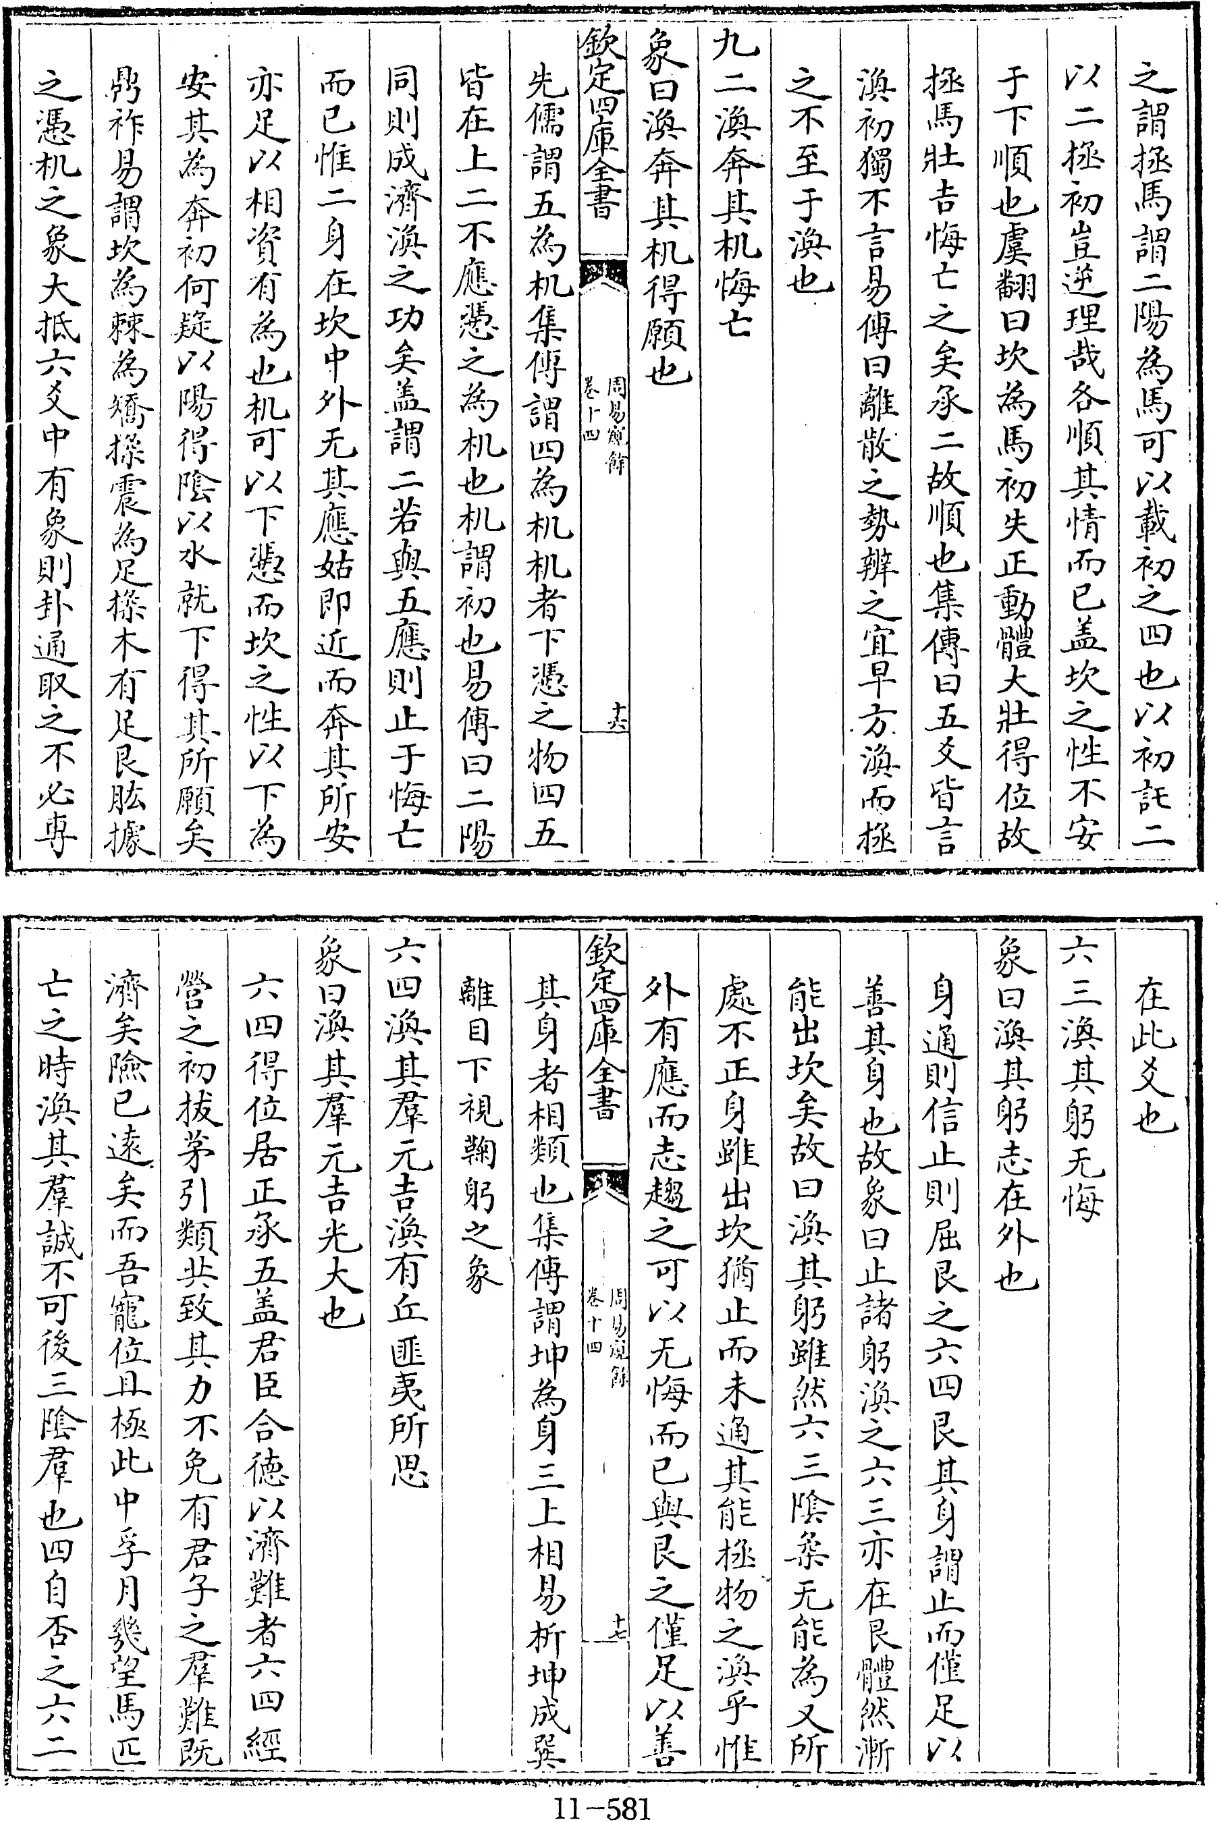 之謂拯馬謂二陽為馬可以載初之四也以初託二
以二拯初豈逆理哉各順其情而已盖坎之性不安
于下順也虞翻曰坎為馬初失正動體大壯得位故
拯馬壯吉悔亡之矣承二故順也集傳曰五爻皆言
渙初獨不言易傳曰離散之勢辨之宜早方渙而拯
之不至于渙也
九二渙奔其机悔亡
象曰渙奔其机得願也
欽定四庫全書
周易窺餘
卷十四
十六
先儒謂五為机集傳謂四為机机者下憑之物四五
皆在上二不應憑之為机也机謂初也易傳曰二陽
同則成濟渙之功矣盖謂二若與五應則止于悔亡
而已惟二身在坎中外无其應姑即近而奔其所安
亦足以相資有為也机可以下憑而坎之性以下為
安其為奔初何疑以陽得陰以水就下得其所願矣
鼎祚易謂坎為棘為矯揉震為足揉木有足艮肱據
之憑机之象大抵六爻中有象則卦通取之不必專
在此爻也
六三渙其躬无悔
象曰渙其躬志在外也
身通則信止則屈艮之六四艮其身謂止而僅足以
善其身也故象曰止諸躬渙之六三亦在艮體然漸
能出坎矣故曰渙其躬雖然六三陰柔无能為又所
處不正身雖出坎猶止而未通其能拯物之渙乎惟
外有應而志趨之可以无悔而已與艮之僅足以善
欽定四庫全書
周易窺餘
卷十四
十七
其身者相類也集傳謂坤為身三上相易析坤成巽
離目下視鞠躬之象
六四渙其羣元吉渙有丘匪夷所思
象曰渙其羣元吉光大也
六四得位居正承五盖君臣合德以濟難者六四經
營之初拔茅引類共致其力不免有君子之羣難既
濟矣險已遠矣而吾寵位且極此中孚月幾望馬匹
亡之時渙其羣誠不可後三陰羣也四自否之六二
11-581